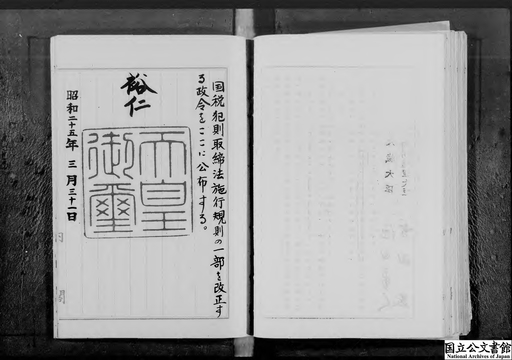 国税犯則取締法施行規則の一部を改正す
る政令をここに公布する。
裕仁
天皇
御璽
昭和二十五年三月三十一日
国立公文書館
National Archives of Japan